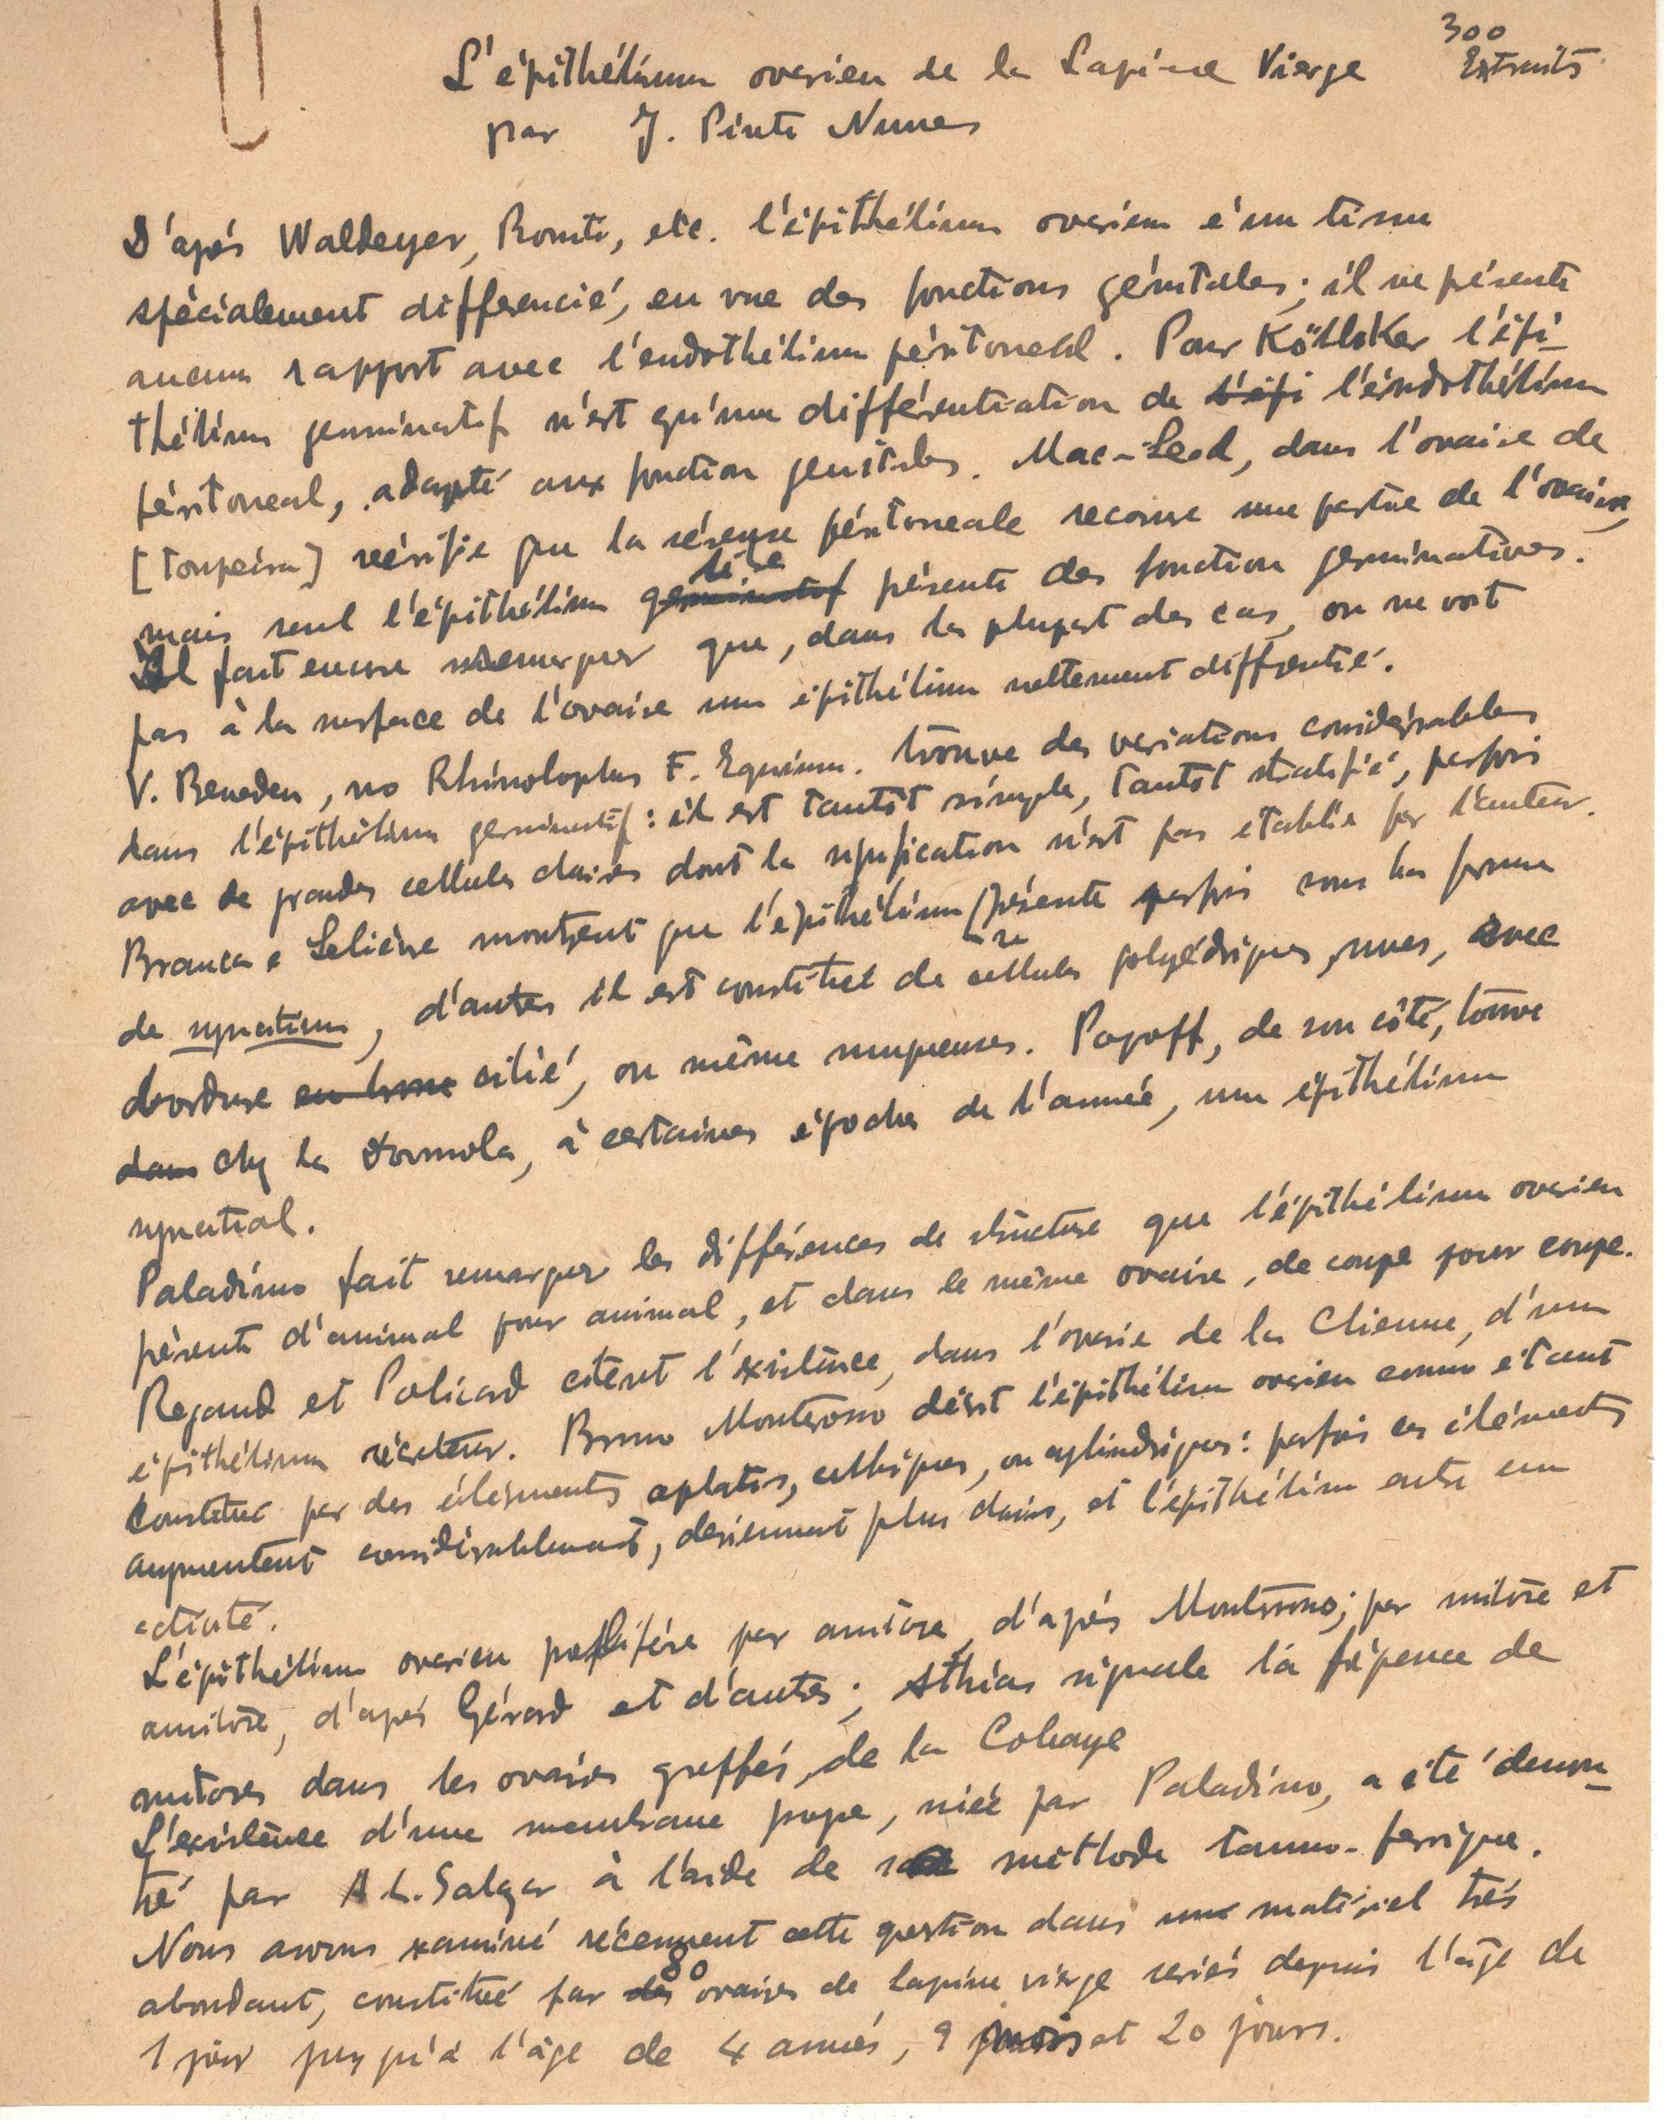 300
L'épithélium ovarien de la Lapine Vierge Extraits
par J. Pinto Nunes
D'aprés Waldeyer, Romiti, etc. l'épithélium ovarien é un tissu
spécialement differencié, en vue des fonctions génitales; il ne présente
aucun rapport avec l'endothélium péritoneal. Pour Kölliker l'épi-
thélium germinatif n'est qu'une différentiation de l'épi l'éndothélium
péritoneal, adapté aux fonction genitales. Mac-Leod, dans l'ovaire de
[Toupeira] vérifie que la séreuse péritoneale recouvre une partie de l'ovaire,
mais seul l'épithélium germinatif présente des fonction germinatives.
Il faut encore remarquer que, dans la plupart des cas, on ne voit
pas à la surface de l'ovaire un épithélium nettement différentié.
V. Beneden, no Rhinolophus F. Equinum. trouve des variations considérables
dans l'épithélium germinatif: il est tantôt simple, tantôt stratifié, parfois
avec de grandes cellules claires dont la signification n'est pas etablie par l'auteur.
Branca e Lelièvre montrent que l'épithélium présente parfois sous la forme
de syncitium, d'autres il est constitué de cellules polyédriques, nues, avec
bordure ciliée, ou même muqueuses. Popoff, de son côté, trouve
dans chez la Dormola, à certaines époches de l'année, un épithélium
syncitial.
Paladino fait remarquer les différences de structure que l'épithélium ovarien
présente d'animal pour animal, et dans le même ovaire, de coupe pour coupe.
Regaud et Policard citent l'existence, dans l'ovarie de la Chienne, d'un
épithélium sécréteur. Bruno Monterosso décrit l'épithélium ovarien comme étant
constitué par des éléments aplatis, cubiques, ou cylindriques: parfois ces éléments
augmentent considérablement, deviennent plus clairs, et l'épithélium entre em
activité.
L'épithélium ovarien prolifére par amitose, d'aprés Monterosso; par mitose et
amitose, d'aprés Gérard et d'autres; Athias signale la fréquence de
mitoses dans les ovaires greffés de la Cobaye
L'existence d'une membrane propre, niée par Paladino, a été démon-
tré par A L. Salazar à l'aide de sa méthode tanno-ferrique.
Nous avons examiné récemment cette question dans un matériel trés
abondant, constitué par des 80 ovaires de lapine vierge seriés depuis l'âge de
1 jour jusqu'à l'âge de 4 années, 9 mois et 20 jours.